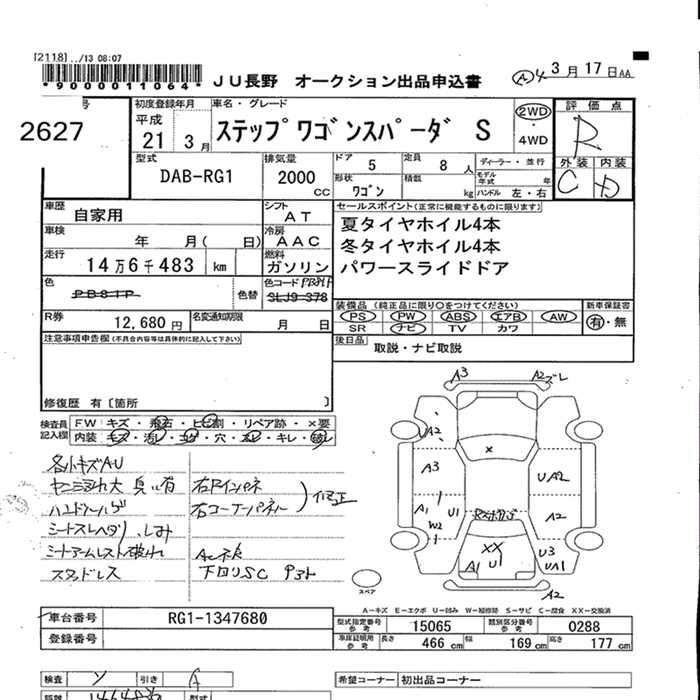 [2118] ../13 08:07
*9000011064*
JU長野 オークション出品申込書
A 4 3月17日 AA
号
2627
初度登録年月
平成
21 3月
車名・グレード
ステップワゴンスパーダ S
2WD
・
4WD
評価点
R
外装 内装
C D
型式
DAB-RG1
排気量
2000
CC
ドア 5
定員 8 人
形状 ワゴン
積載 kg
ディーラー・並行
モデル年式 年
ハンドル 左・右
車歴
自家用
シフト
AT
セールスポイント(正常に機能するものに限ります)
夏タイヤホイル4本
冬タイヤホイル4本
パワースライドドア
車検
年 月( 日)
冷房
AAC
走行
14万6千483 km
燃料
ガソリン
色
PB81P
色替
色コード PB81P
SLJ9-378
装備品 (純正品に限り○をつけてください)
PS PW ABS エアB AW
SR ナビ TV カワ
新車保証書
有・無
R券
12,680円
名変通知期限
月 日
後日品
取説・ナビ取説
注意事項申告欄(不具合内容等は具体的に記入して下さい)
修復歴 有〔箇所
検査員
記入欄
FW キズ・飛石・ヒビ割・リペア跡・×要
内装 キズ・汚レ・コゲ・穴・スレ・キレ・破レ
各小キズAU
ハンドルスレ
シートスレヘタリ、しみ
シートアームレスト破れ
スタッドレス
右Rインパネ
右コーナーパネル
修正
下回りSC
A3
A2 ズレ
A2
A3
A1
U1
W2
×
UA2
A2
XX
A1 U1
U3
UA1
A2
スペア
A－キズ E－エクボ U－凹み W－補修跡 S－サビ C－腐食 XX－交換済
車台番号
RG1-1347680
登録番号
型式指定番号
参考
15065
類別区分番号
参考
0288
車庫証明用
参考
長さ 466 cm
幅 169 cm
高さ 177 cm
検査
引き A
希望コーナー 初出品コーナー